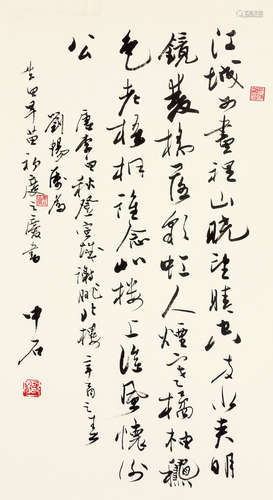 江城如畫裡山曉望晴空兩水夾明
鏡雙橋落彩虹人煙寒橘柚穐
色老梧桐誰念北樓上臨風懷謝
公
唐李白秋登宣城謝朓北樓 辛酉之春
劉暢屬為
中石